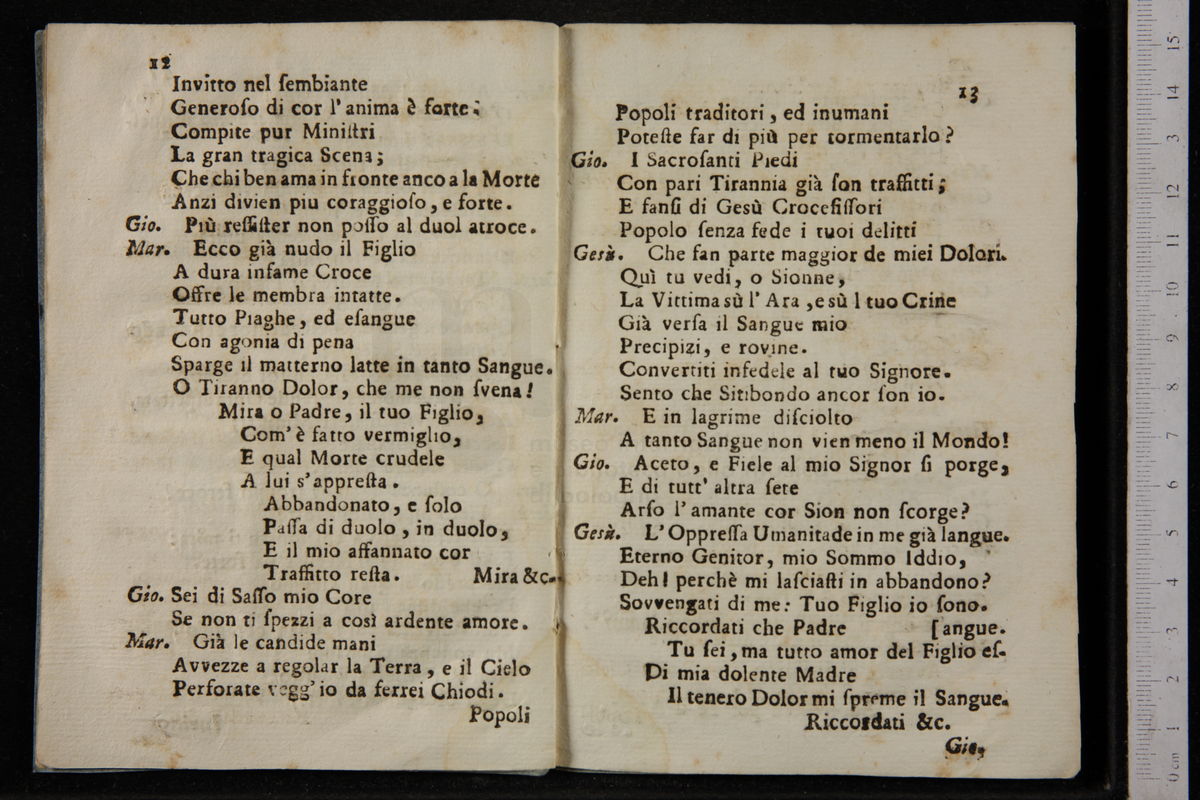 12
Invitto nel ſembiante
Generoſo di cor l' anima è forte;
Compite pur Miniſtri
La gran tragica Scena;
Che chi ben ama in fronte anco a la Morte
Anzi divien piu coraggioſo, e forte.
Gio. Più reſſiſter non poſſo al duol atroce.
Mar. Ecco già nudo il Figlio
A dura infame Croce
Offre le membra intatte.
Tutto Piaghe, ed eſangue
Con agonia di pena
Sparge il matterno latte in tanto Sangue.
O Tiranno Dolor, che me non ſvena!
Mira o Padre, il tuo Figlio,
Com' è fatto vermiglio,
E qual Morte crudele
A lui s' appreſta.
Abbandonato, e ſolo
Paſſa di duolo, in duolo,
E il mio affannato cor
Traffitto reſta. Mira &c.
Gio. Sei di Saſſo mio Core
Se non ti ſpezzi a così ardente amore.
Mar. Già le candide mani
Avvezze a regolar la Terra, e il Cielo
Perforate vegg' io da ferrei Chiodi.
Popoli
13
Popoli traditori, ed inumani
Poteſte far di più per tormentarlo?
Gio. I Sacroſanti Piedi
Con pari Tirannia già ſon traffitti;
E fanſi di Gesù Crocefiſſori
Popolo ſenza fede i tuoi delitti
Gesù. Che fan parte maggior de miei Dolori.
Quì tu vedi, o Sionne,
La Vittima sù l' Ara, e sù l tuo Crine
Già verſa il Sangue mio
Precipizi, e rovine.
Convertiti infedele al tuo Signore.
Sento che Sitibondo ancor ſon io.
Mar. E in lagrime diſciolto
A tanto Sangue non vien meno il Mondo!
Gio. Aceto, e Fiele al mio Signor ſi porge,
E di tutt' altra ſete
Arſo l' amante cor Sion non ſcorge?
Gesù. L' Oppreſſa Umanitade in me già langue.
Eterno Genitor, mio Sommo Iddio,
Deh! perchè mi laſciaſti in abbandono?
Sovvengati di me: Tuo Figlio io ſono.
Riccordati che Padre [angue.
Tu ſei, ma tutto amor del Figlio eſ-
Di mia dolente Madre
Il tenero Dolor mi ſpreme il Sangue.
Riccordati &c.
Gio,